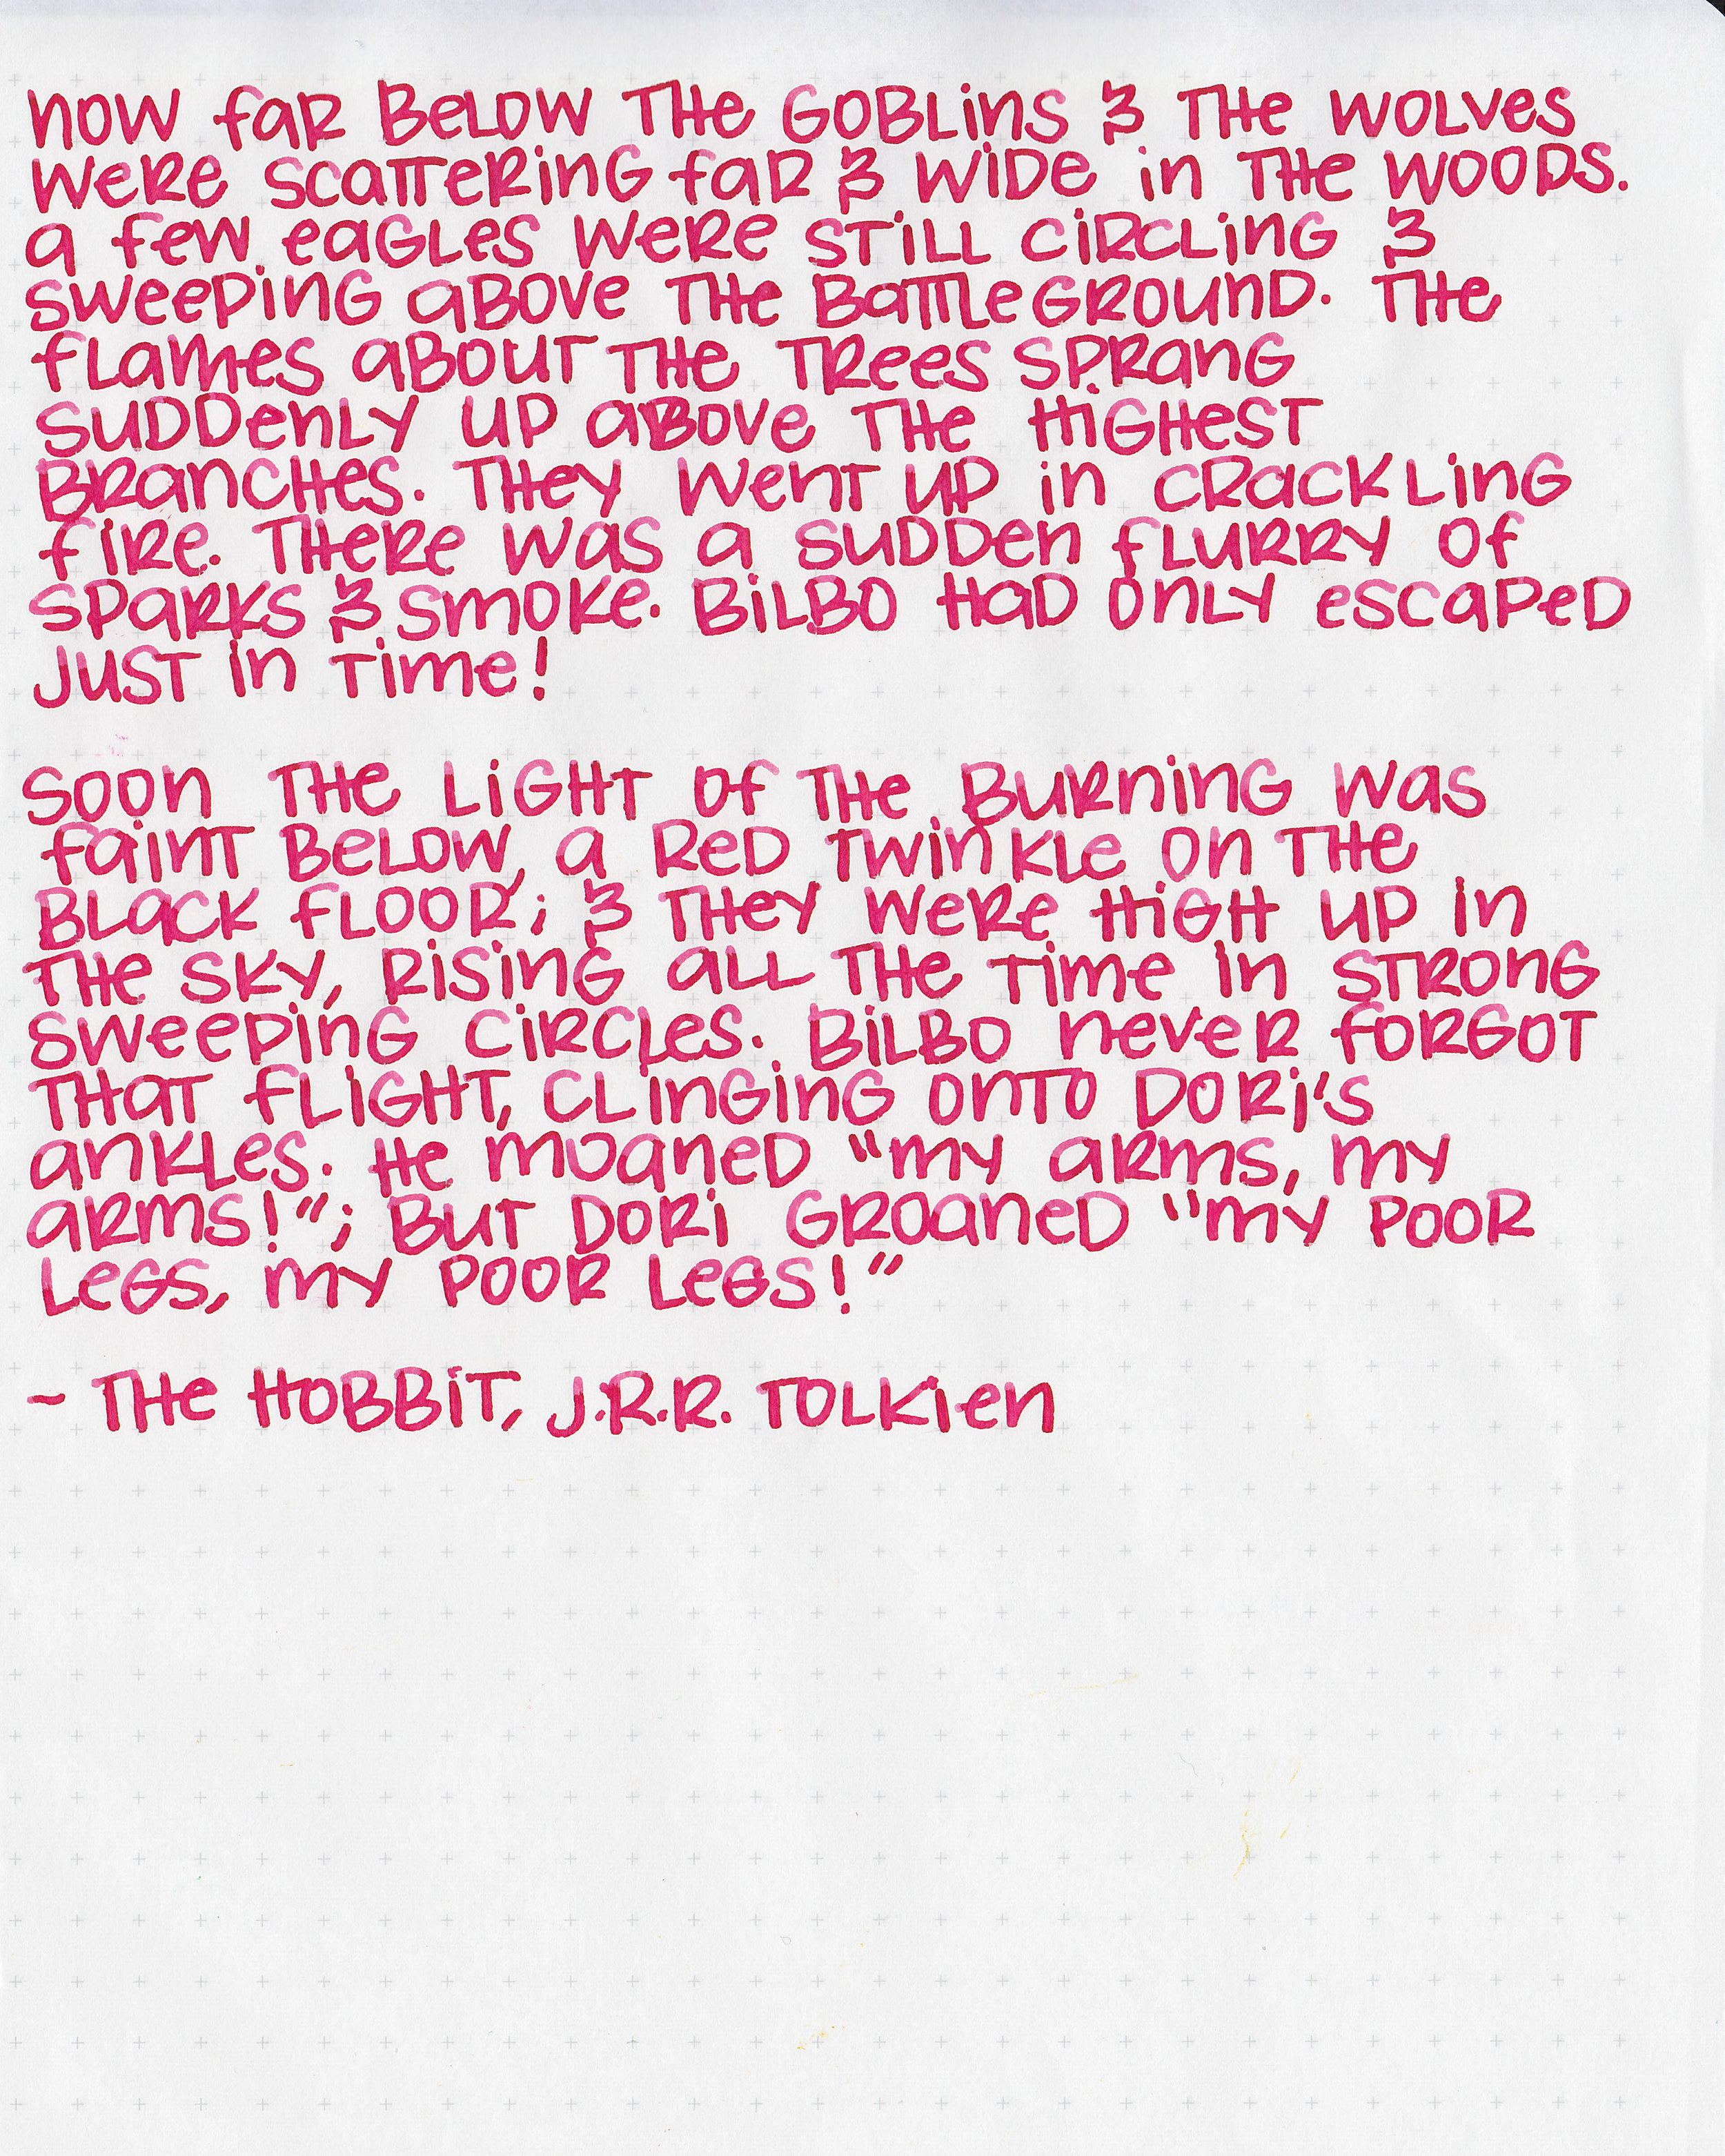 now far below the goblins & the wolves
were scattering far & wide in the woods.
a few eagles were still circling &
sweeping above the battleground. The
flames about the trees sprang
suddenly up above the highest
branches. They went up in crackling
fire. There was a sudden flurry of
sparks & smoke. Bilbo had only escaped
just in time!

Soon the light of the burning was
faint below, a red twinkle on the
black floor; & they were high up in
the sky, rising all the time in strong
sweeping circles. Bilbo never forgot
that flight, clinging onto Dori's
ankles. He moaned "my arms, my
arms!"; but Dori groaned "my poor
legs, my poor legs!"

~ The Hobbit, J.R.R. Tolkien